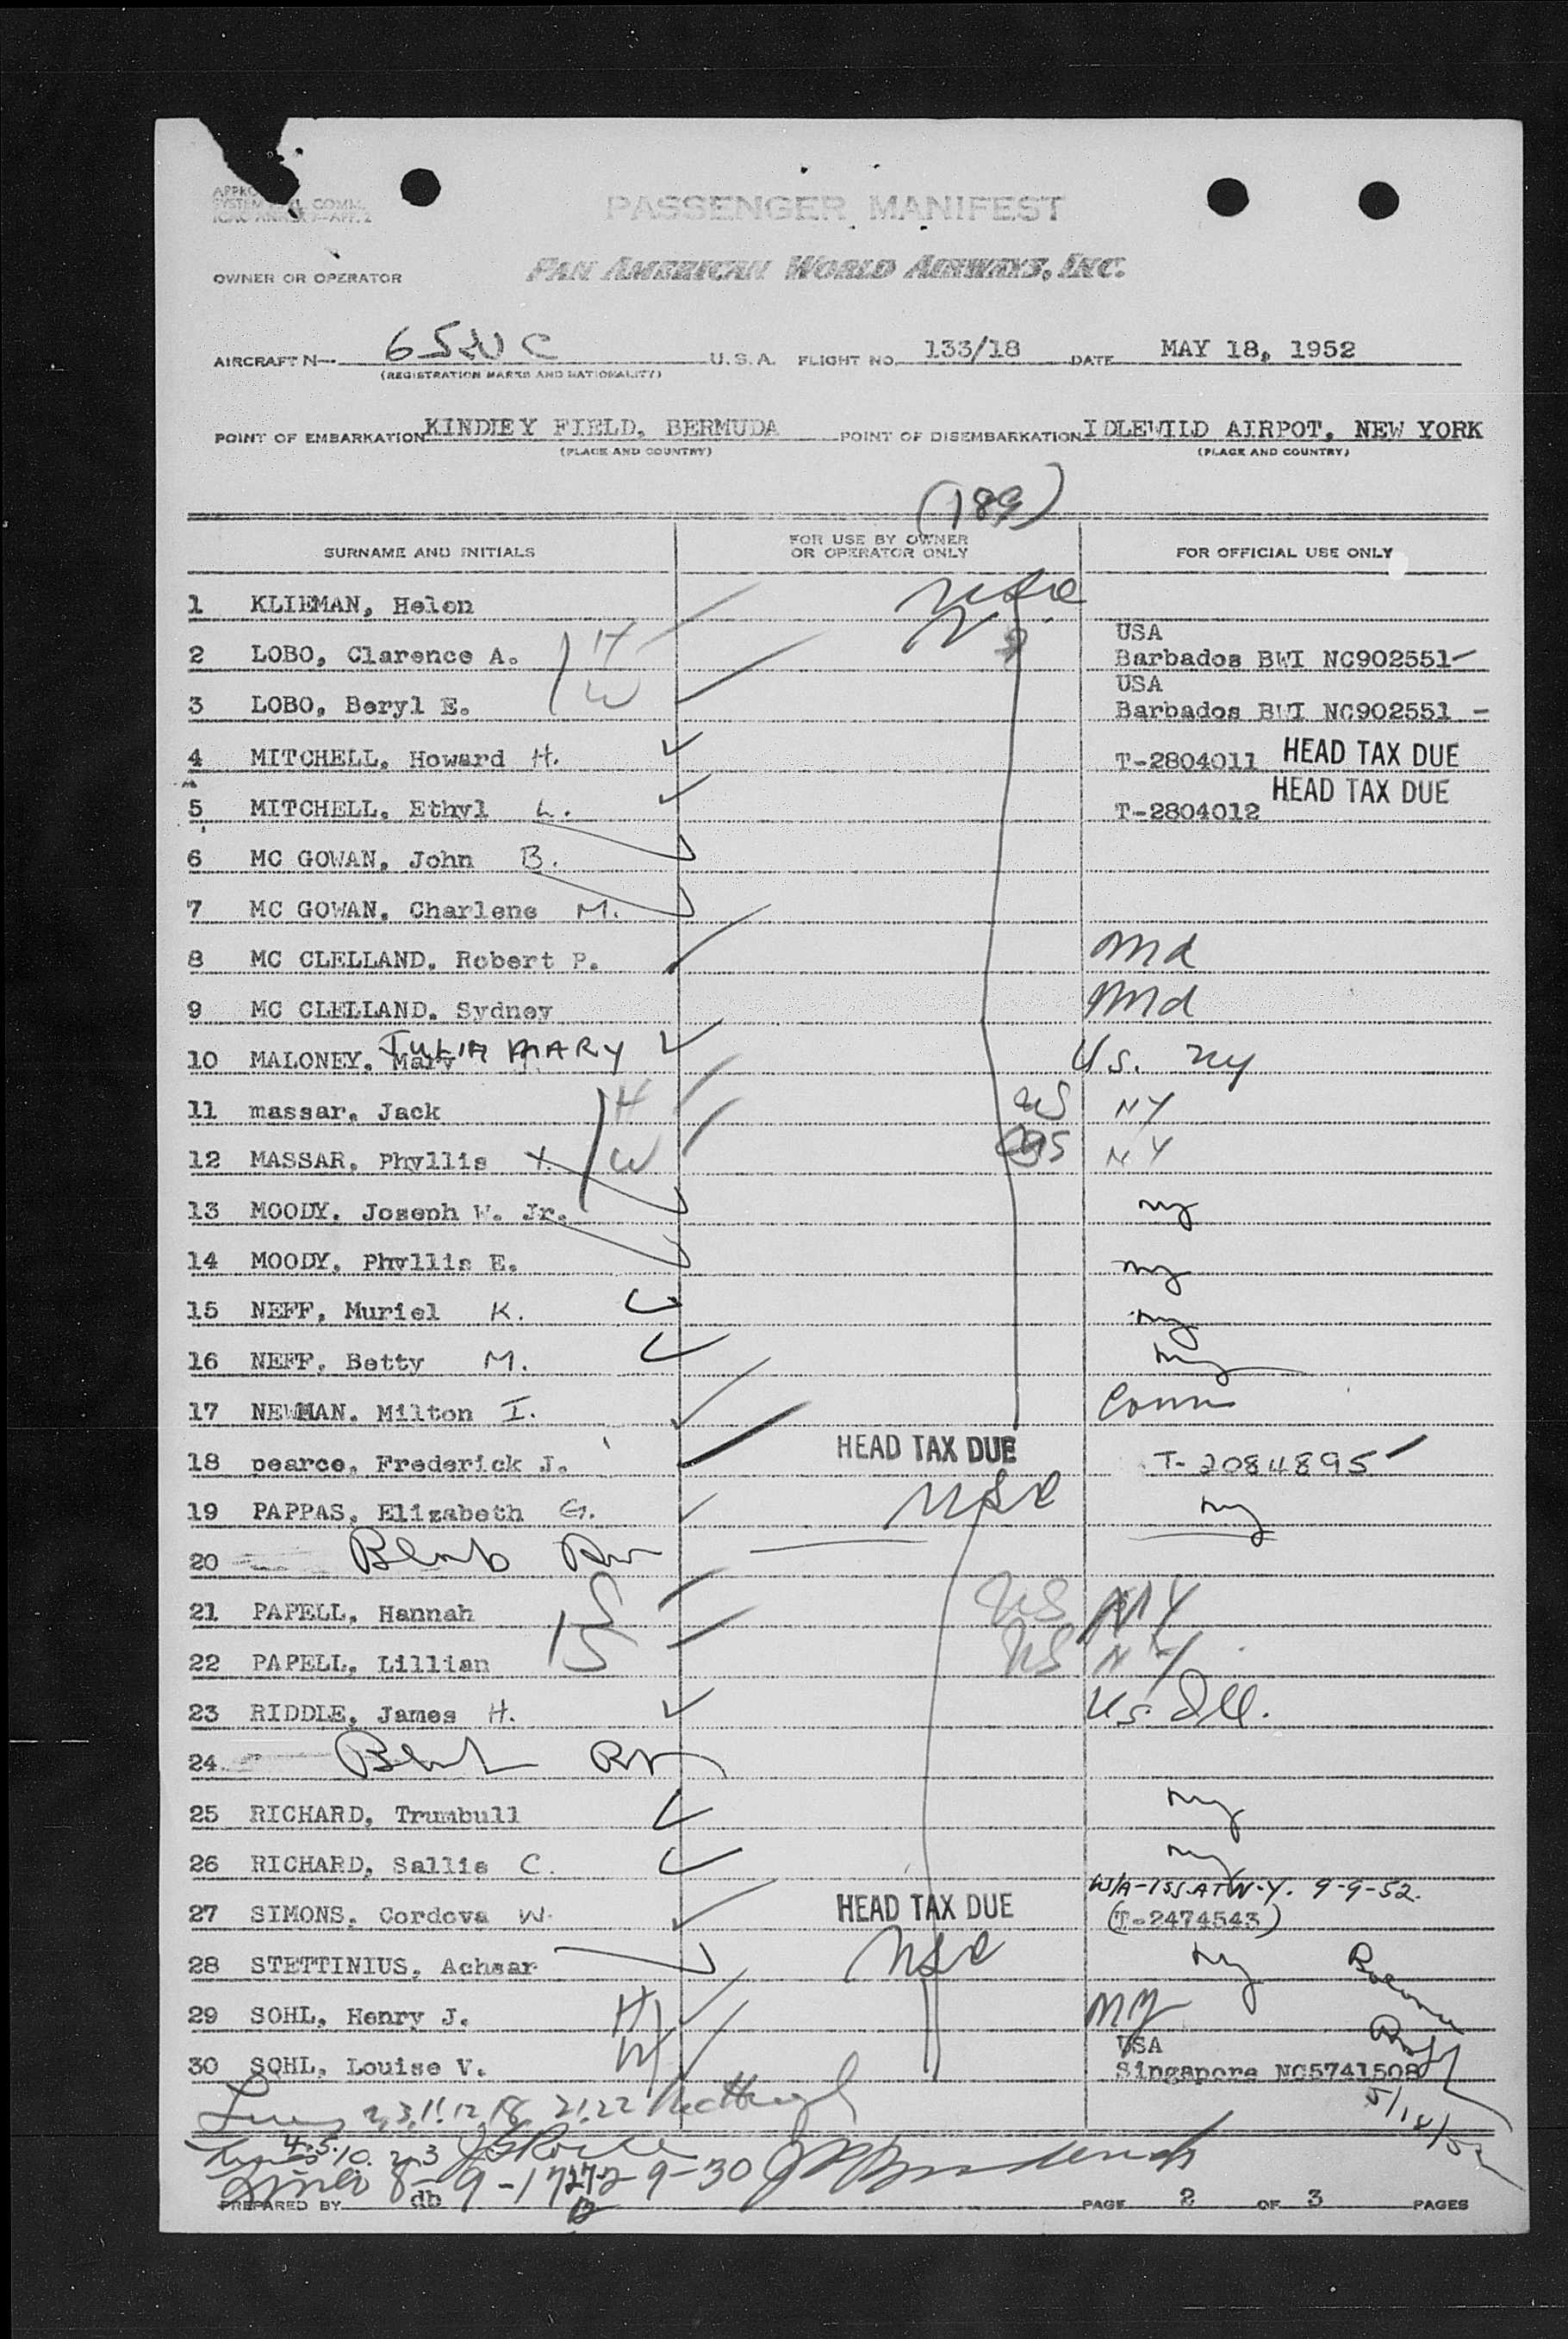 PASSENGER MANIFEST
OWNER OR OPERATOR PAN AMERICAN WORLD AIRWAYS, INC.
AIRCRAFT N— U.S.A. FLIGHT NO. 133/18 DATE MAY 18, 1952
(REGISTRATION MARKS AND NATIONALITY)
POINT OF EMBARKATION KINDLEY FIELD, BERMUDA POINT OF DISEMBARKATION IDLEWILD AIRPOT, NEW YORK
(PLACE AND COUNTRY) (PLACE AND COUNTRY)
(189)
SURNAME AND INITIALS FOR USE BY OWNER OR OPERATOR ONLY FOR OFFICIAL USE ONLY
1 KLIEMAN, Helen
USA
2 LOBO, Clarence A. H Barbados BWI NC902551
USA
3 LOBO, Beryl E. W Barbados BWI NC902551
4 MITCHELL, Howard H. T-2804011 HEAD TAX DUE
5 MITCHELL, Ethyl L. T-2804012 HEAD TAX DUE
6 MC GOWAN, John B.
7 MC GOWAN, Charlene M.
8 MC CLELLAND, Robert P. Md
9 MC CLELLAND, Sydney Md
10 MALONEY, Mary JULIA MARY U.S. NY
11 massar, Jack H US NY
12 MASSAR, Phyllis Y. W US NY
13 MOODY, Joseph W. Jr. NY
14 MOODY, Phyllis E. NY
15 NEFF, Muriel K. NY
16 NEFF, Betty M. NY
17 NEWMAN, Milton I. Conn
18 pearce, Frederick J. HEAD TAX DUE T-2084895
19 PAPPAS, Elizabeth G. NY
20
21 PAPELL, Hannah S US NY
22 PAPELL, Lillian S US NY
23 RIDDLE, James H. U.S. Ill.
24
25 RICHARD, Trumbull NY
26 RICHARD, Sallie C. NY
W/A-ISS. AT N.Y. 9-9-52.
27 SIMONS, Cordova W. HEAD TAX DUE (T-2474543)
28 STETTINIUS, Achsar NY
29 SOHL, Henry J. H NY
USA
30 SOHL, Louise V. W Singapore NC5741508
2,3,11,12,18 21,22 5/18/52
4-5-10.23
8-9-17 9-30
PREPARED BY db PAGE 2 OF 3 PAGES